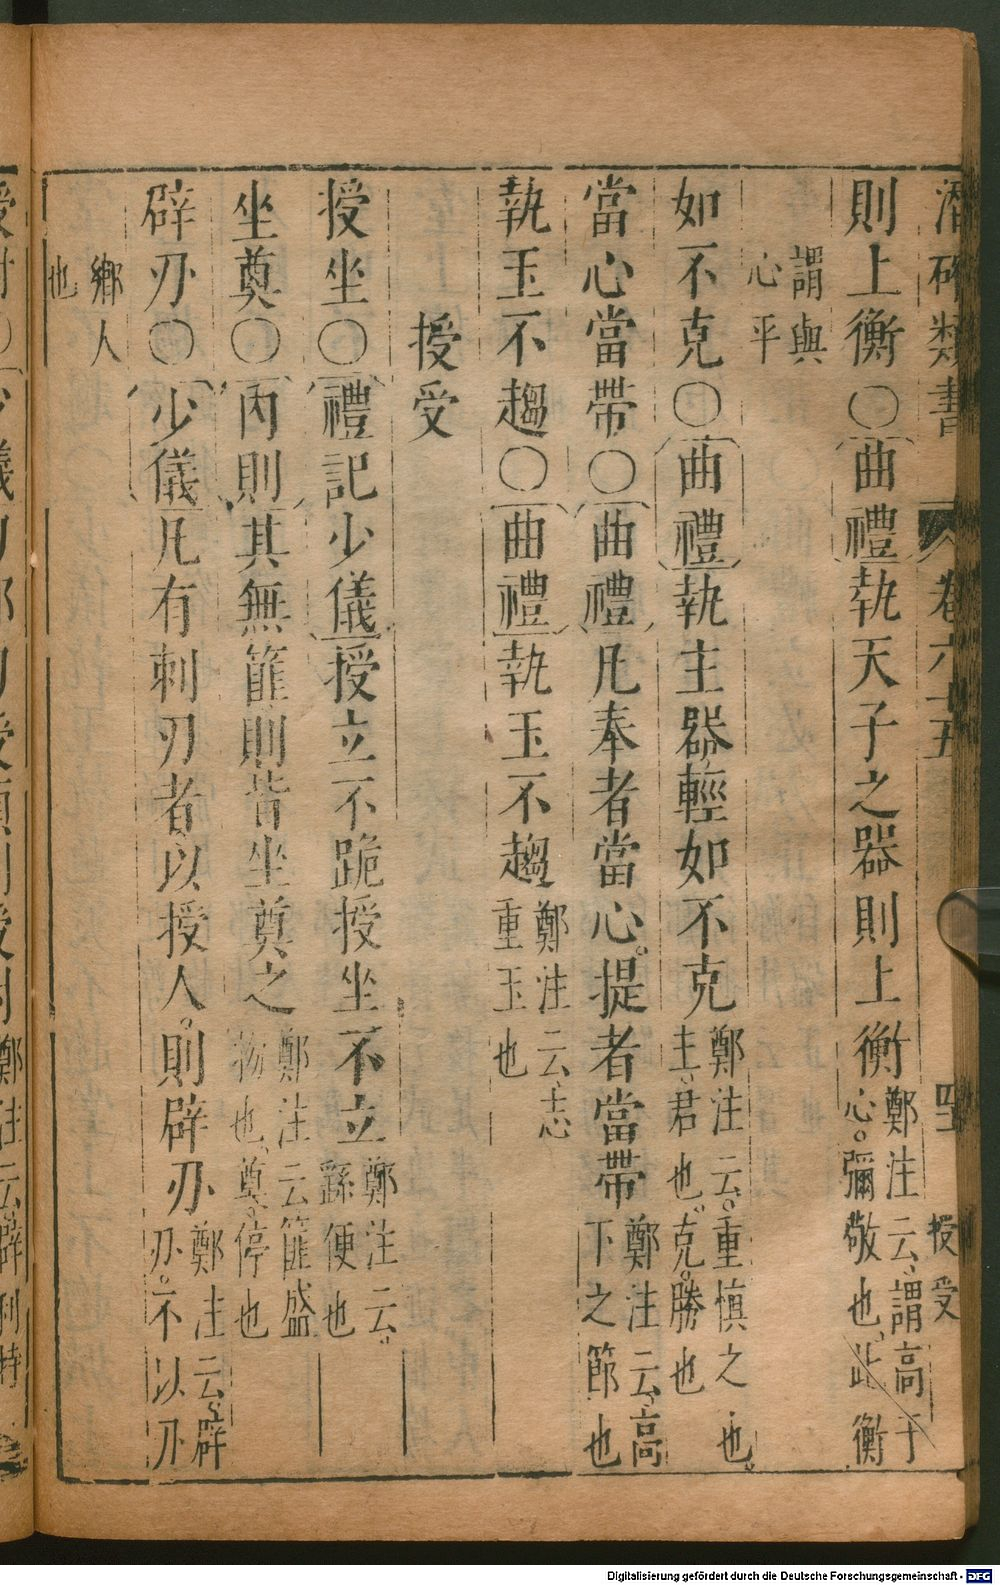 潛確類書 卷六十五 授受 四
則上衡〇曲禮執天子之器則上衡鄭注云謂高于心彌敬也此衡
謂與心平
如不克〇曲禮執主器輕如不克鄭注云重慎之也主君也克勝也
當心當帶〇曲禮凡奉者當心提者當帶鄭注云高下之節也
執玉不趨〇曲禮執玉不趨鄭注云志重玉也
授受
授坐〇禮記少儀授立不跪授坐不立鄭注云繇便也
坐奠〇內則其無篚則皆坐奠之鄭注云篚盛物也奠停也
辟刃〇少儀凡有刺刃者以授人則辟刃鄭注云辟刃不以刃
鄉人也